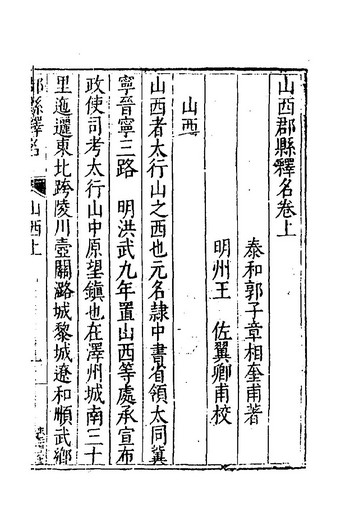 山西郡縣釋名卷上
泰和郭子章相奎甫著
明州王　佐翼卿甫校
山西
山西者太行山之西也元名隷中書省領太同冀
寧晉寧三路　明洪武九年置山西等處承宣布
政使司考太行山中原望鎭也在澤州城南三十
里迤邐東北跨陵川壺關潞城黎城遼和順武鄉
郡縣釋名
山西上